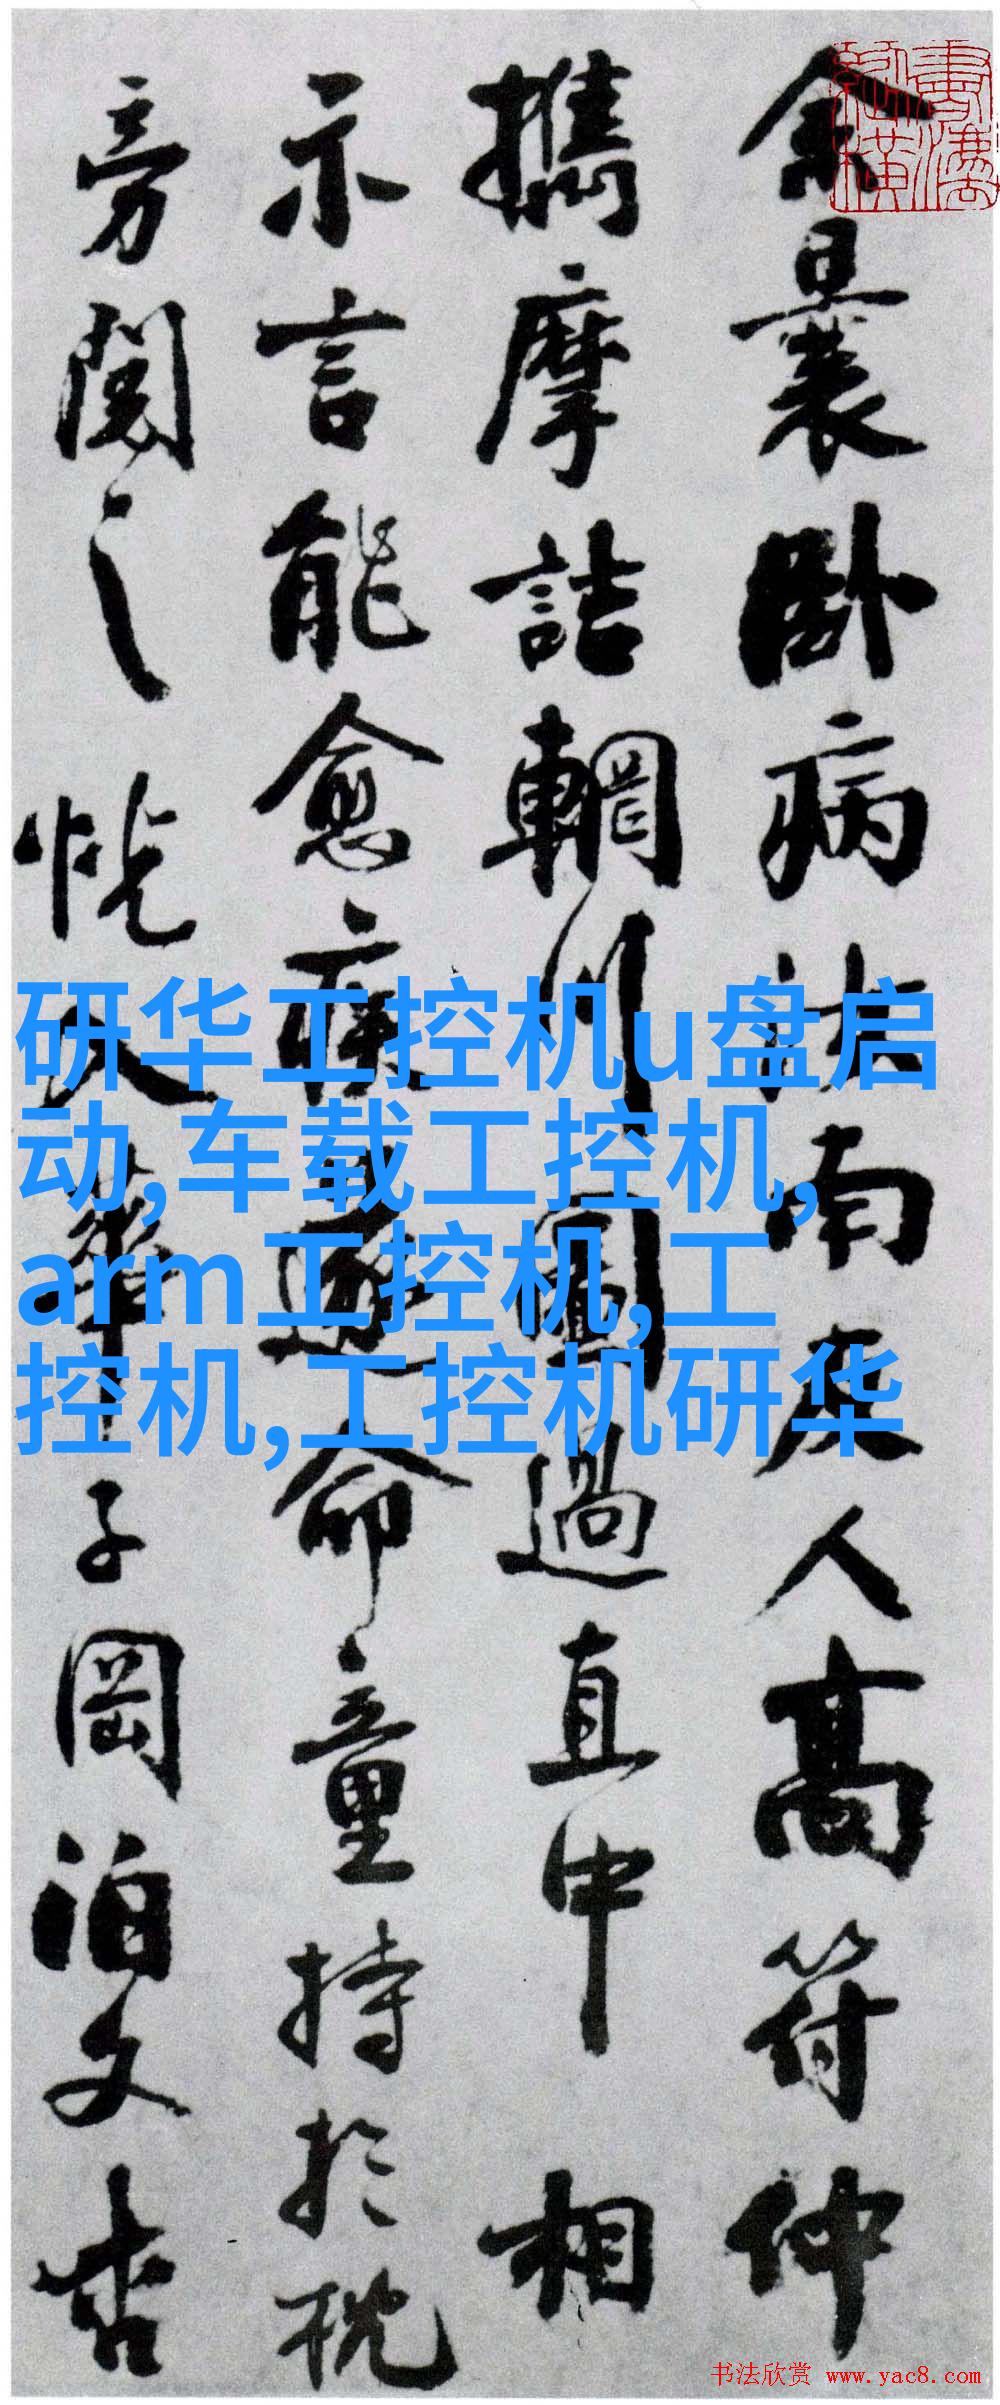 余曩臥病汝南友人高符仲
攜摩詰輞川圖過直中相
示言能愈疾遂命童持於枕
旁閱之恍入華子岡泊文杏
研华工控机u盘启
动,车载工控机,
arm工控机,工
控机,工控机研华
书法欣赏 www.yac8.com